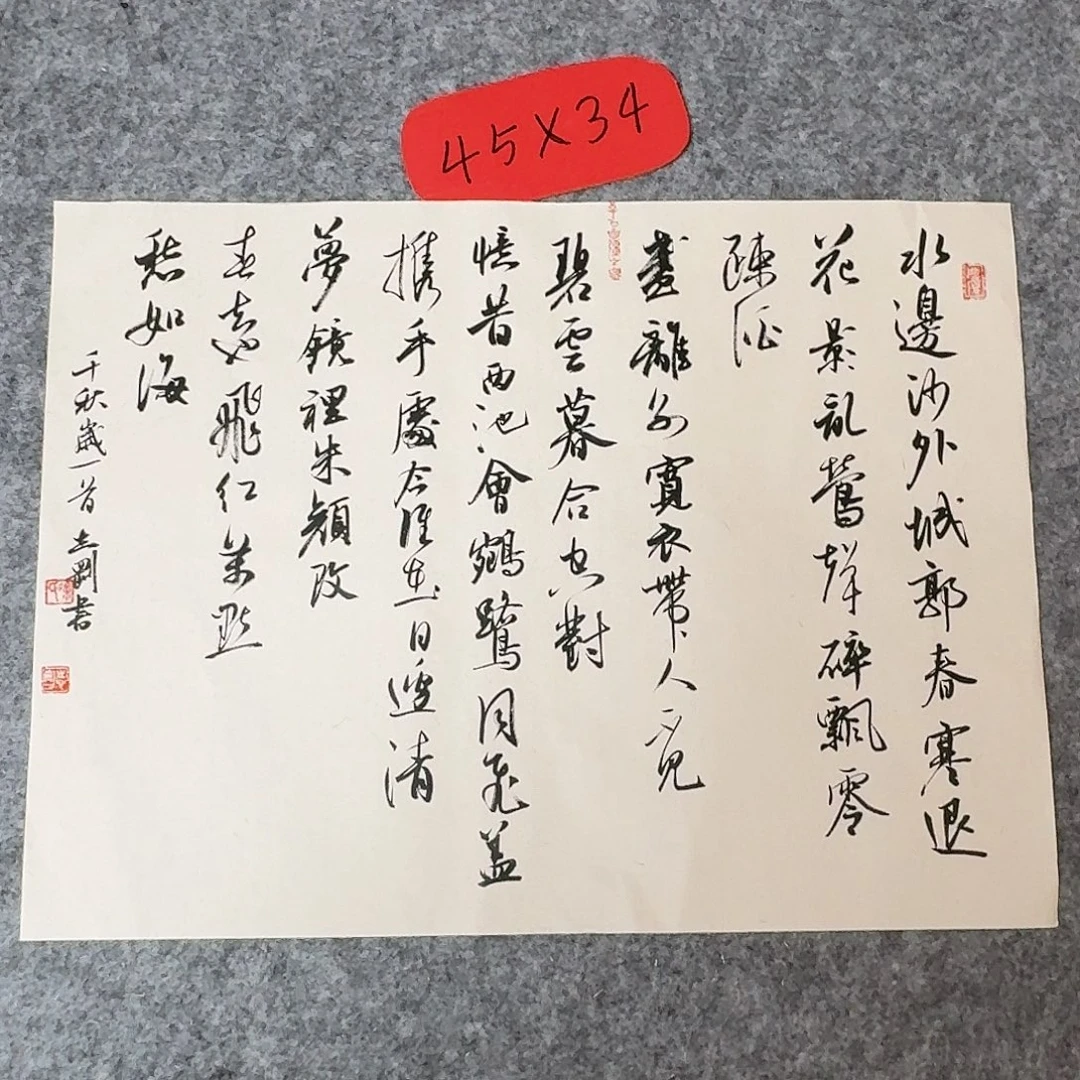 45X34
水邊沙外城郭春寒退
花影亂鶯聲碎飄零
疎酒
盞離別寬衣帶人不見
碧雲暮合空對
憶昔西池會鵷鷺同飛蓋
携手處今誰在日邊清
夢鏡裡朱顏改
春去也飛红萬點
愁如海
千秋歲一首 志剛書